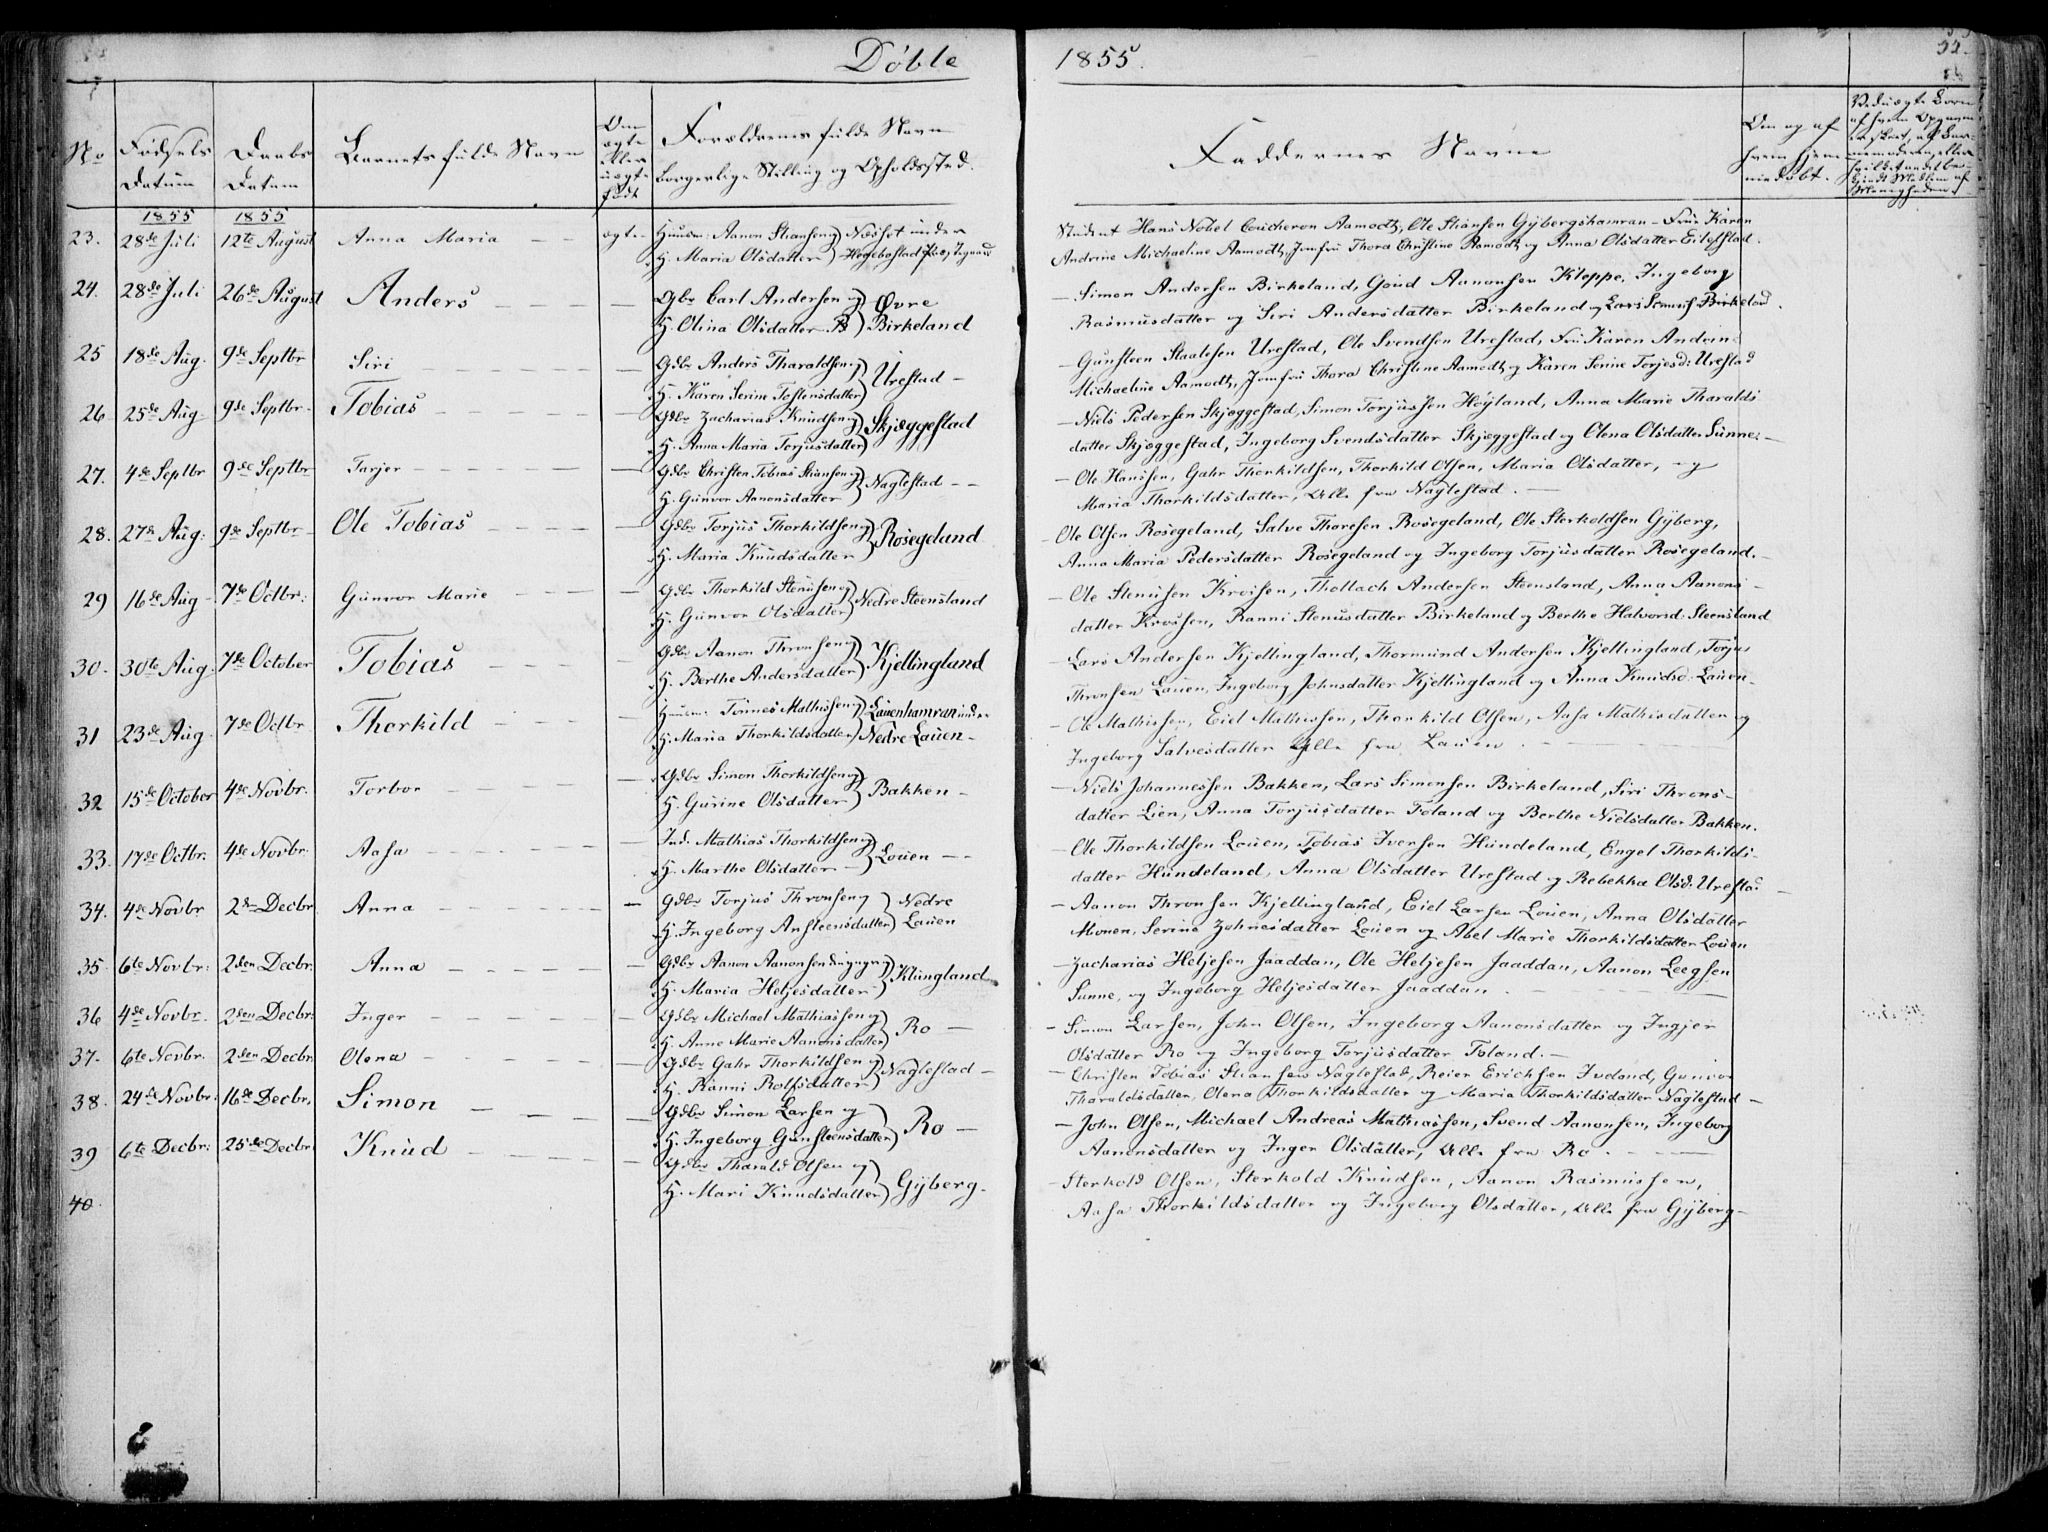 Døbte 1855.
No
Fødsels Datum
Daabs Datum
Barnets fulde Navn
Om ægte eller uægte født
Forældrenes fulde Navn borgerlige Stilling og Opholdssted.
Faddernes Navne
Om og af hvem hjemmedøbt.
1855 1855
23. 28de Juli 12te August Anna Maria — — ægte
H. Maria Olsdatter
Student Hans Nobel Coucheron Aamodt, Ole Stiansen Gÿbergshamran – Frue Karen
Andrine Michaeline Aamodt, Jomfru Thora Christine Aamodt og Anna Olsdatter Eilefstad.
24. 28de Juli 26de August Anders — — — —
Gbr Carl Andersen og
H. Olina Olsdatter
Øvre Birkeland
— Simon Andersen Birkeland, Goud Aanonsen Kleppe, Ingeborg
Rasmusdatter og Siri Andersdatter Birkeland og Lars Birkeland.
25 18de Aug. 9de Septbr Siri — — — —
Gdbr Anders Tharaldsen og
H. Karen Serine Tostensdatter
Urestad —
— Gunsteen Staalesen Urestad, Ole Svendsen Urestad, Fru Karen Andrine
Michaeline Aamodt, Jomfru Thora Christine Aamodt og Karen Serine Torjesd: Urestad
26 25de Aug. 9de Septbr. Tobias — — — —
Gdbr Zacharias Knudsen og
H. Anna Maria Torjusdatter
Skjæggestad
— Niels Pedersen Skjæggestad, Simon Torjussen Höÿland, Anna Marie Tharalds-
datter Skjæggestad, Ingeborg Svendsdatter Skjæggestad og Olena Olsdatter Sunne. —
27. 4de Septbr 9de Septbr Tarjer — — — —
Gdbr Christen Tobias Stiansen og
H. Gunvor Aanonsdatter
Naglestad — —
— Ole Hanssen, Gahr Thorkildsen, Thorkild Olsen, Maria Olsdatter, og
Maria Thorkildsdatter, Alle fra Naglestad. —
28. 27de Aug: 9de Septbr Ole Tobias — — — —
Gdbr Torjus Thorkildsen og
H. Maria Knudsdatter
Rosegeland
Ole Olsen Rosegeland, Salve Thoresen Rosegeland, Ole Sterkoldsen Gÿberg,
Anna Maria Pedersdatter Rosegeland og Ingeborg Torjusdatter Rosegeland. —
29 16de Aug — 7de Octbr: Gunvor Marie — — —
Gdbr Thorkild Stenusen og
H. Gunvor Olsdatter
Nedre Steensland
— Ole Stenusen Kroisen, Thollach Andersen Steensland, Anna Aanons-
datter Kroisen, Ranni Stenusdatter Birkeland og Berthe Halvorsd: Steensland
30. 30te Aug. 7de October Tobias — — —
Gdbr Aanon Thronsen og
H. Berthe Andersdatter
Kjellingland
— Lars Andersen Kjellingland, Thormund Andersen Kjellingland, Torjus
Thronsen Lauen, Ingeborg Johnsdatter Kjellingland og Anna Knudsd: Lauen —
31 23de Aug. 7de Octbr Thorkild — — —
Huusm: Tönnes Mathissen og
H. Maria Thorkildsdatter
Lauenhamran under
Nedre Lauen —
— Ole Mathissen, Eiel Mathissen, Thorkild Olsen, Aasa Mathisdatter og
Ingeborg Salvesdatter Alle fra Lauen. — — —
32 15de October 4de Novbr. Torbor — — — —
Gdbr Simon Thorkildsen og
H. Gurine Olsdatter
Bakken —
— Niels Johannessen Bakken, Lars Simonsen Birkeland, Siri Throns-
datter Lien, Anna Torjusdatter Foland og Berthe Nielsdatter Bakken.
33. 17de Octbr. 4de Novbr. Aasa — — — —
Ind. Mathias Thorkildsen og
H. Marthe Olsdatter —
Louen — —
— Ole Thorkildsen Louen, Tobias Iversen Hundeland, Engel Thorkilds-
datter Hundeland, Anna Olsdatter Urestad og Rebekka Olsd: Urestad —
34. 4de Novbr 2den Decbr. Anna — — — —
Gdbr Torjus Thronsen og
H. Ingeborg Ansteensdatter
Nedre Lauen
— Aanon Thronsen Kjellingland, Eiel Larsen Louen, Anna Olsdatter
Monen, Serine Johnesdatter Louen og Abel Marie Thorkildsdatter Louen
35 6te Novbr: 2den Decbr. Anna — — — —
Gdbr Aanon Aanonsen og
H. Maria Heljesdatter
Klungland
— Zacharias Heljesen Jaaddan, Ole Heljesen Jaaddan, Aanon Leegsen
Sunne, og Ingeborg Heljesdatter Jaaddan. — — —
36 4de Novbr. 2den Decbr: Inger — — — —
Gdbr Michael Mathiassen og
H. Anne Marie Aanonsdatter
Ro —
— Simon Larsen, John Olsen, Ingeborg Aanonsdatter og Ingjer
Olsdatter Ro og Ingeborg Torjusdatter Foland. —
37. 6te Novbr. 2den Decbr. Olena — — — —
Gdbr Gahr Thorkildsen og
H. Ranni Rolfsdatter
Naglestad —
— Christen Tobias Stiansen Naglestad, Reier Erichsen Ivdand, Gunvor
Tharaldsdatter, Olena Thorkildsdatter og Maria Thorkildsdatter Naglestad —
38. 24de Novbr: 16de Decbr. Simon — — — —
Gdbr Simon Larsen og
H. Ingeborg Gunsteensdatter
Ro —
— John Olsen, Michael Andreas Mathiassen, Svend Aanonsen, Ingeborg
Aanonsdatter og Inger Olsdatter, Alle fra Ro. — — —
39 6te Decbr: 25de Decbr. Knud — — — —
Gdbr Tharald Olsen og
H. Mari Knudsdatter
Gÿberg.
— Sterkold Olsen, Sterkold Knudsen, Aanon Rasmussen,
Aasa Thorkildsdatter og Ingeborg Olsdatter, Alle fra Gÿberg —
40.